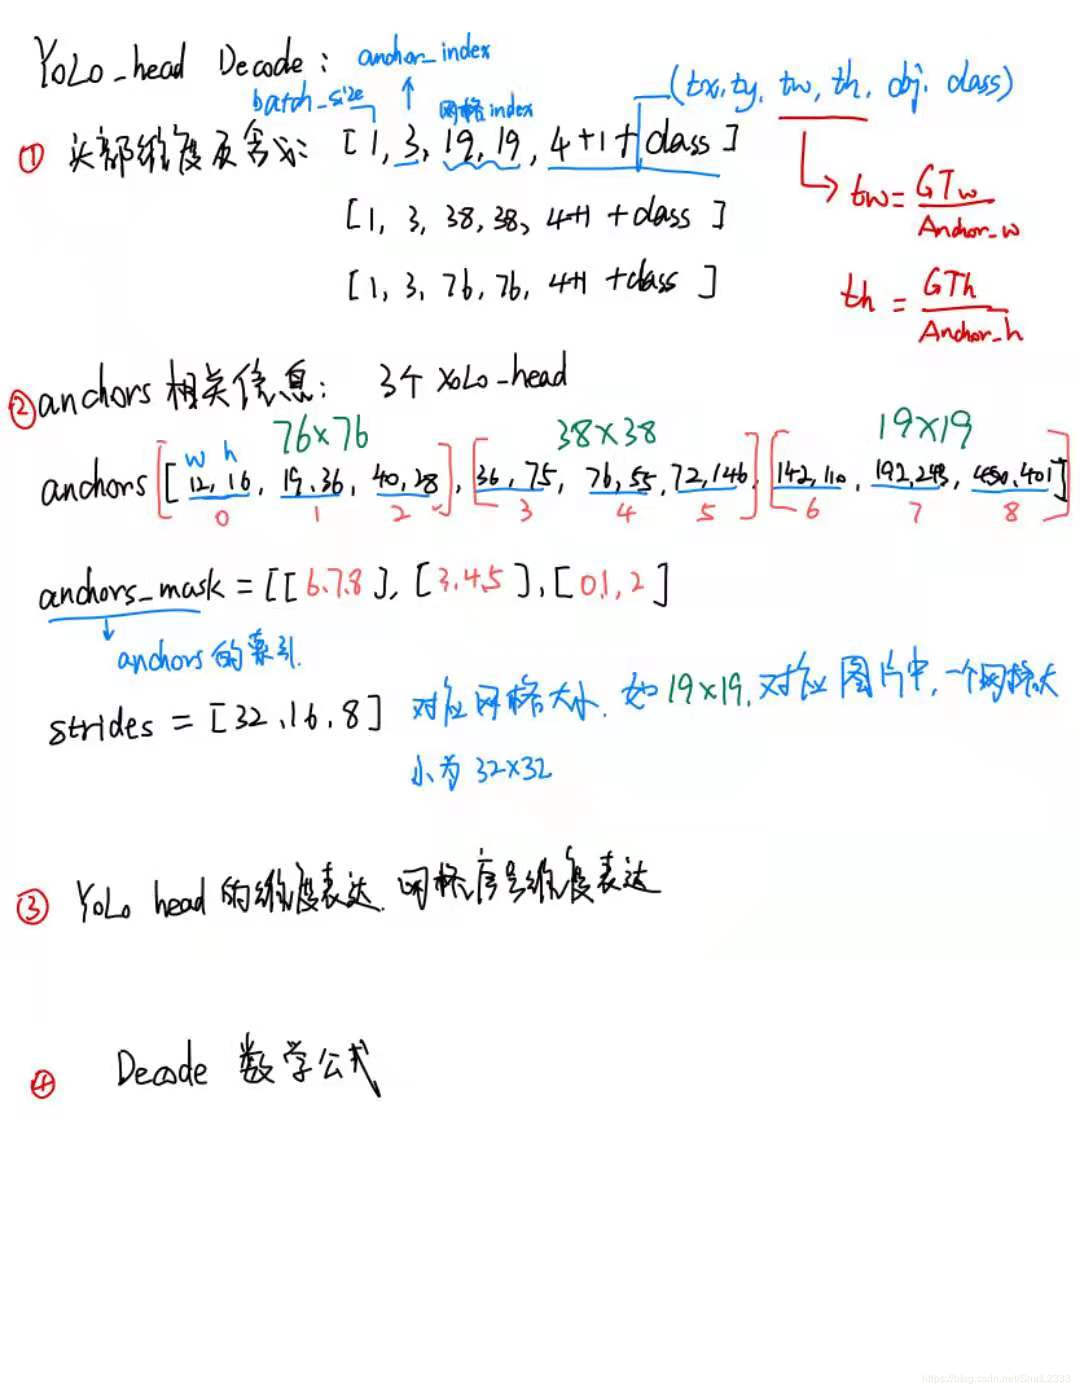 YoLo_head Decode: anchor_index
batch_size 网格index (tx, ty, tw, th, obj, class)
① 头部维度及含义: [1, 3, 19, 19, 4+1+class]
tw = GTw / Anchor_w
[1, 3, 38, 38, 4+1+class]
[1, 3, 76, 76, 4+1+class]
th = GTh / Anchor_h
② anchors 相关信息: 3个 YoLo-head
76×76 38×38 19×19
w h
anchors [12, 16, 19, 36, 40, 28, 36, 75, 76, 55, 72, 146, 142, 110, 192, 243, 450, 401]
0 1 2 3 4 5 6 7 8
anchors_mask = [[6.7.8], [3.4.5], [0.1, 2]
anchors 的索引.
strides = [32, 16, 8] 对应网格大小. 如 19×19, 对应图片中, 一个网格大
小为 32×32
③ YoLo head 的维度表达. 网格序号维度表达
④ Decode 数学公式